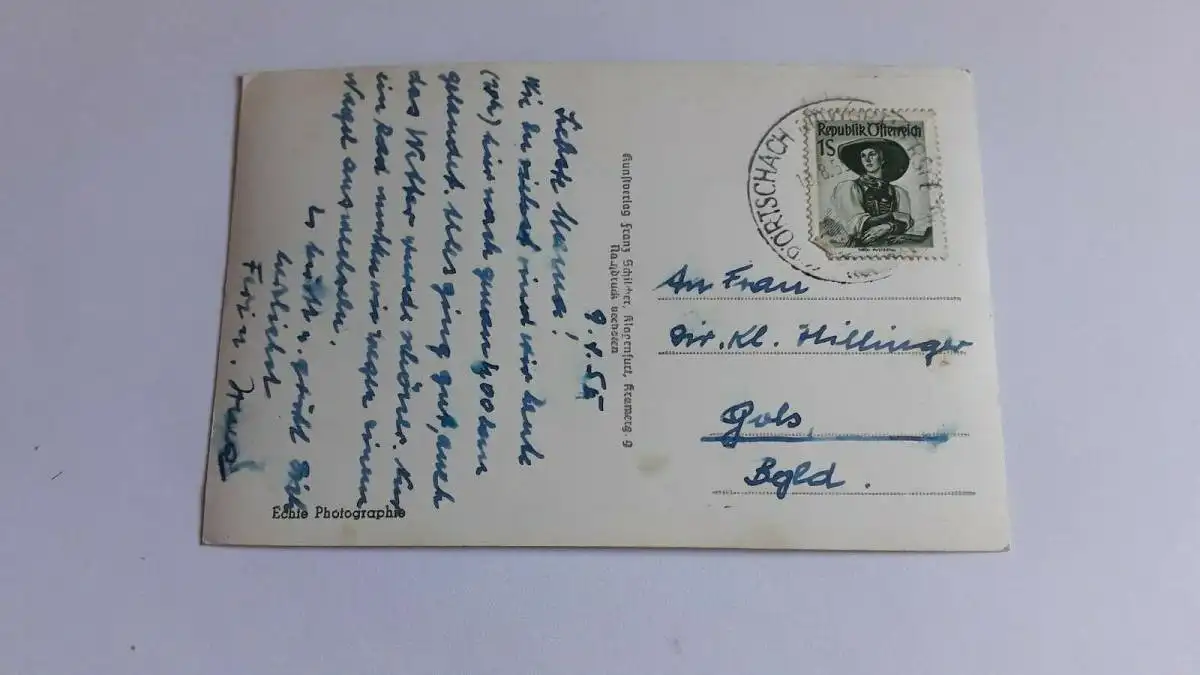 9.8.55
Liebste Mama!
Wie Du siehst sind wir heute
hier nach genau 400 km
gelandet. Alles ging gut, auch
das Wetter wunderschön. Nur
ein Rad mußten wir wegen einem
Nagel auswechseln.
Es küßt u. grüßt Dich
herzlichst
u.
Echte Photographie
Kunstverlag Franz Schilcher, Klagenfurt, Kramerg. 9
Nachdruck verboten
PÖRTSCHACH
Republik Österreich
1S
An Frau
Dir. Kl. Hillinger
Gols
Bgld.